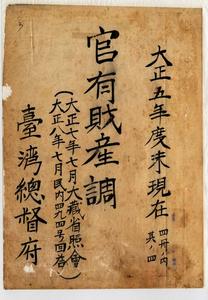 大正五年度末現在
四冊ノ内
其ノ四
官有財産調
(大正七年七月大藏省照會
大正八年七月民内四九四号回答)
臺湾總督府